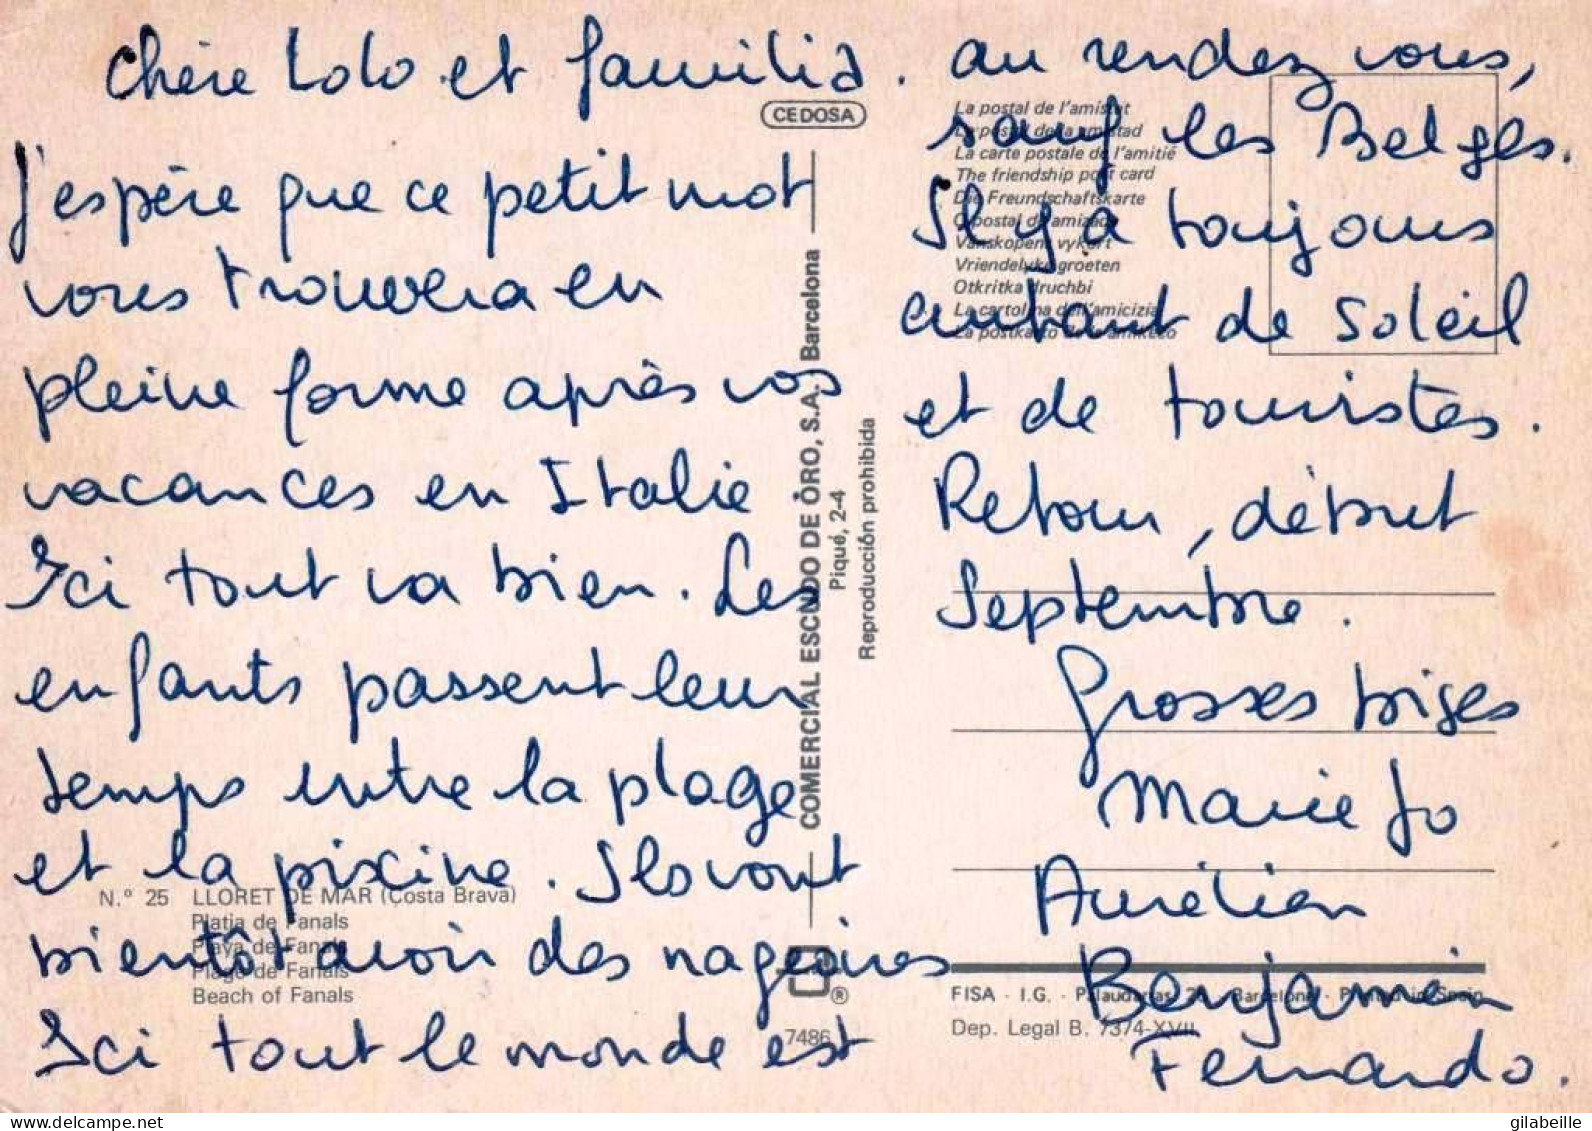 Chère Lolo et familia.
J'espère que ce petit mot
vous trouvera en
pleine forme après vos
vacances en Italie
Ici tout va bien. Les
enfants passent leur
temps entre la plage
et la piscine. Ils vont
bientôt avoir des nageoires
Ici tout le monde est
au rendez vous,
sauf les Belges.
Il y a toujours
autant de soleil
et de touristes.
Retour, début
Septembre.
Grosses bises
Marie Jo
Aurélien
Benjamin
Fernando.
CEDOSA
COMERCIAL ESCUDO DE ÒRO, S.A. Barcelona
Piqué, 2-4
Reproducción prohibida
La postal de l'amistat
La postal de la amistad
La carte postale de l'amitié
The friendship post card
Die Freundschaftskarte
O postal da amizade
Vänskopens vykort
Vriendelyke groeten
Otkritka druchbi
La cartolina dell'amicizia
La postkarto de la amikeco
N.º 25 LLORET DE MAR (Costa Brava)
Platja de Fanals
Playa de Fanals
Plage de Fanals
Beach of Fanals
®
7486
FISA - I.G. - Palaudarias, 26 - Barcelona - Printed in Spain
Dep. Legal B. 7374-XVII
gilabeille